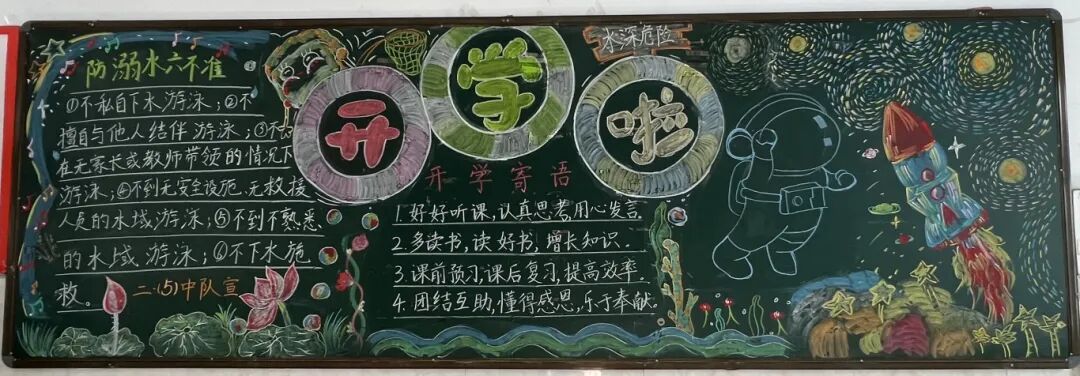 防溺水六不准
①不私自下水游泳；②不
擅自与他人结伴游泳；③不
在无家长或教师带领的情况下
游泳；④不到无安全设施、无救援
人员的水域游泳；⑤不到不熟悉
的水域游泳；⑥不下水施
救。
二(5)中队宣
开学啦
水深危险
开学寄语
1.好好听课，认真思考用心发言
2.多读书，读好书，增长知识.
3.课前预习，课后复习，提高效率.
4.团结互助，懂得感恩，乐于奉献.